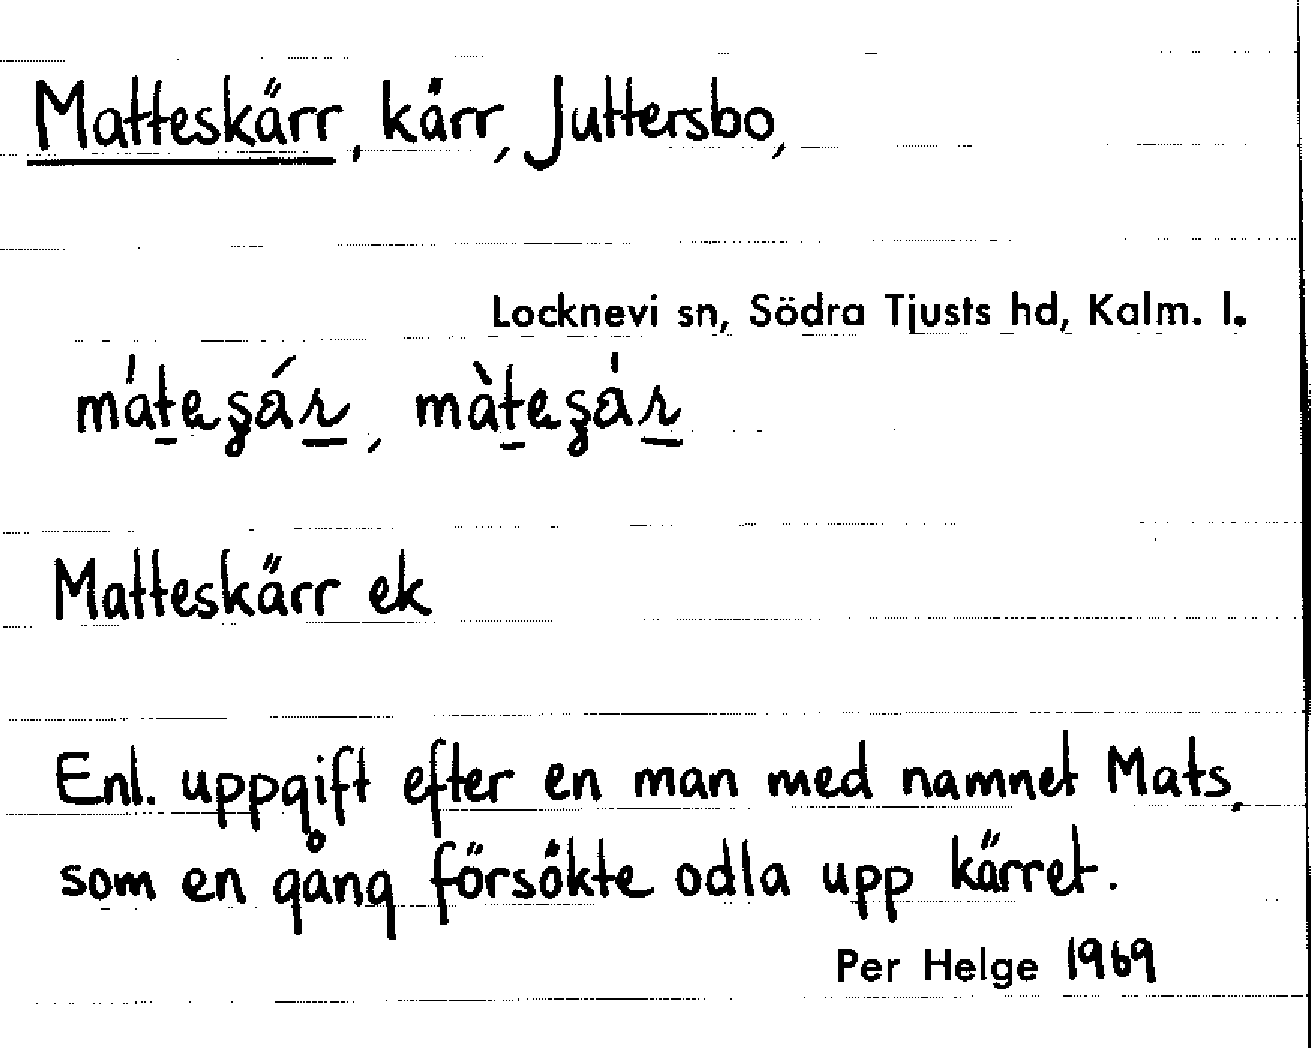 Matteskärr, kärr, Juttersbo,
Locknevi sn, Södra Tjusts hd, Kalm. l.
Matteskärr ek
Enl. uppgift efter en man med namnet Mats,
som en gång försökte odla upp kärret.
Per Helge 1969